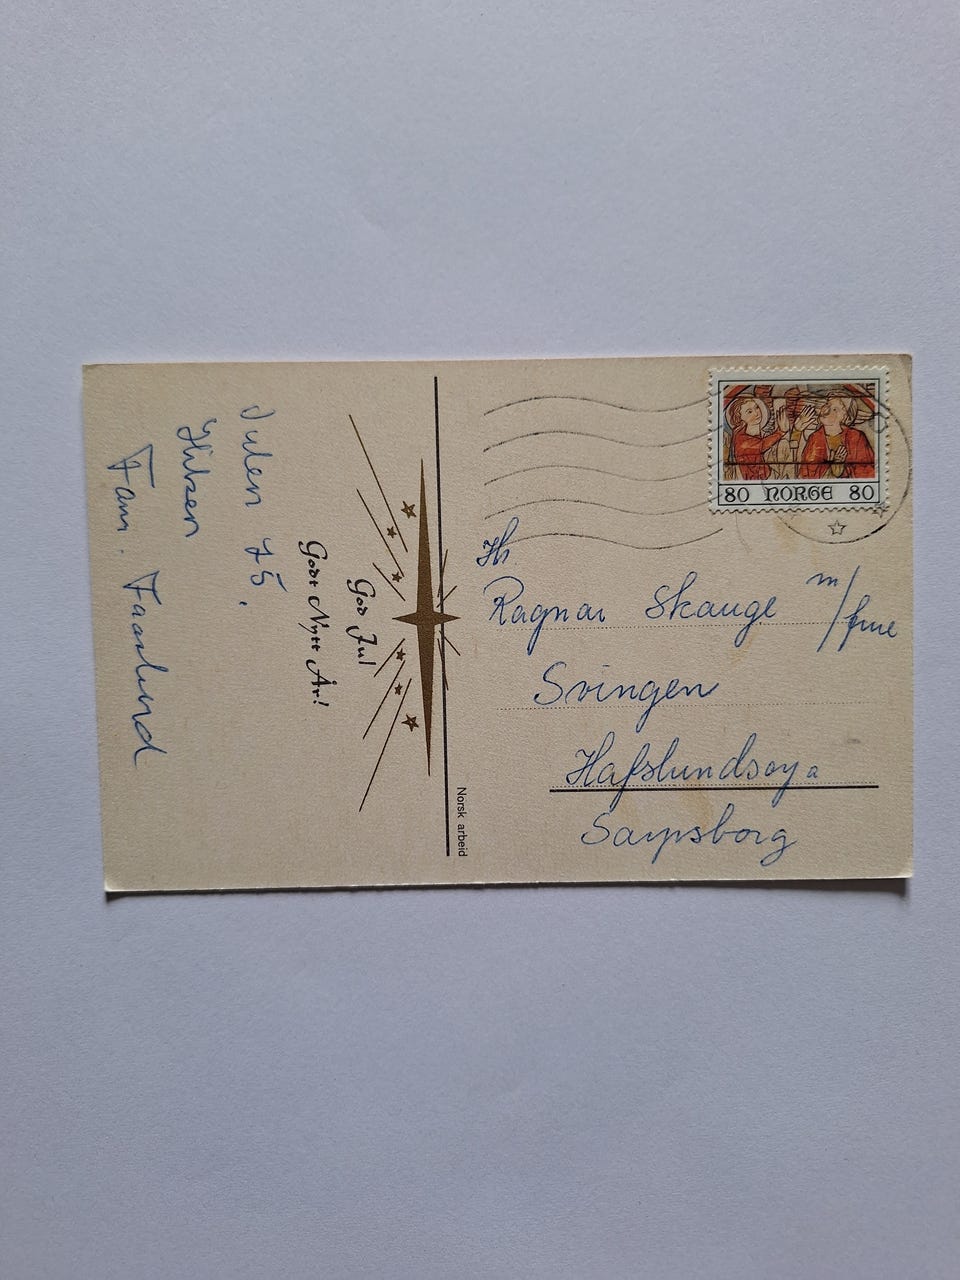 God Jul
Godt Nytt År!
Julen 75.
Hilsen
Fam. Faarlund
Norsk arbeid
80 NORGE 80
Hr.
Ragnar Skauge m/frue
Svingen
Hafslundsøy a
Sarpsborg